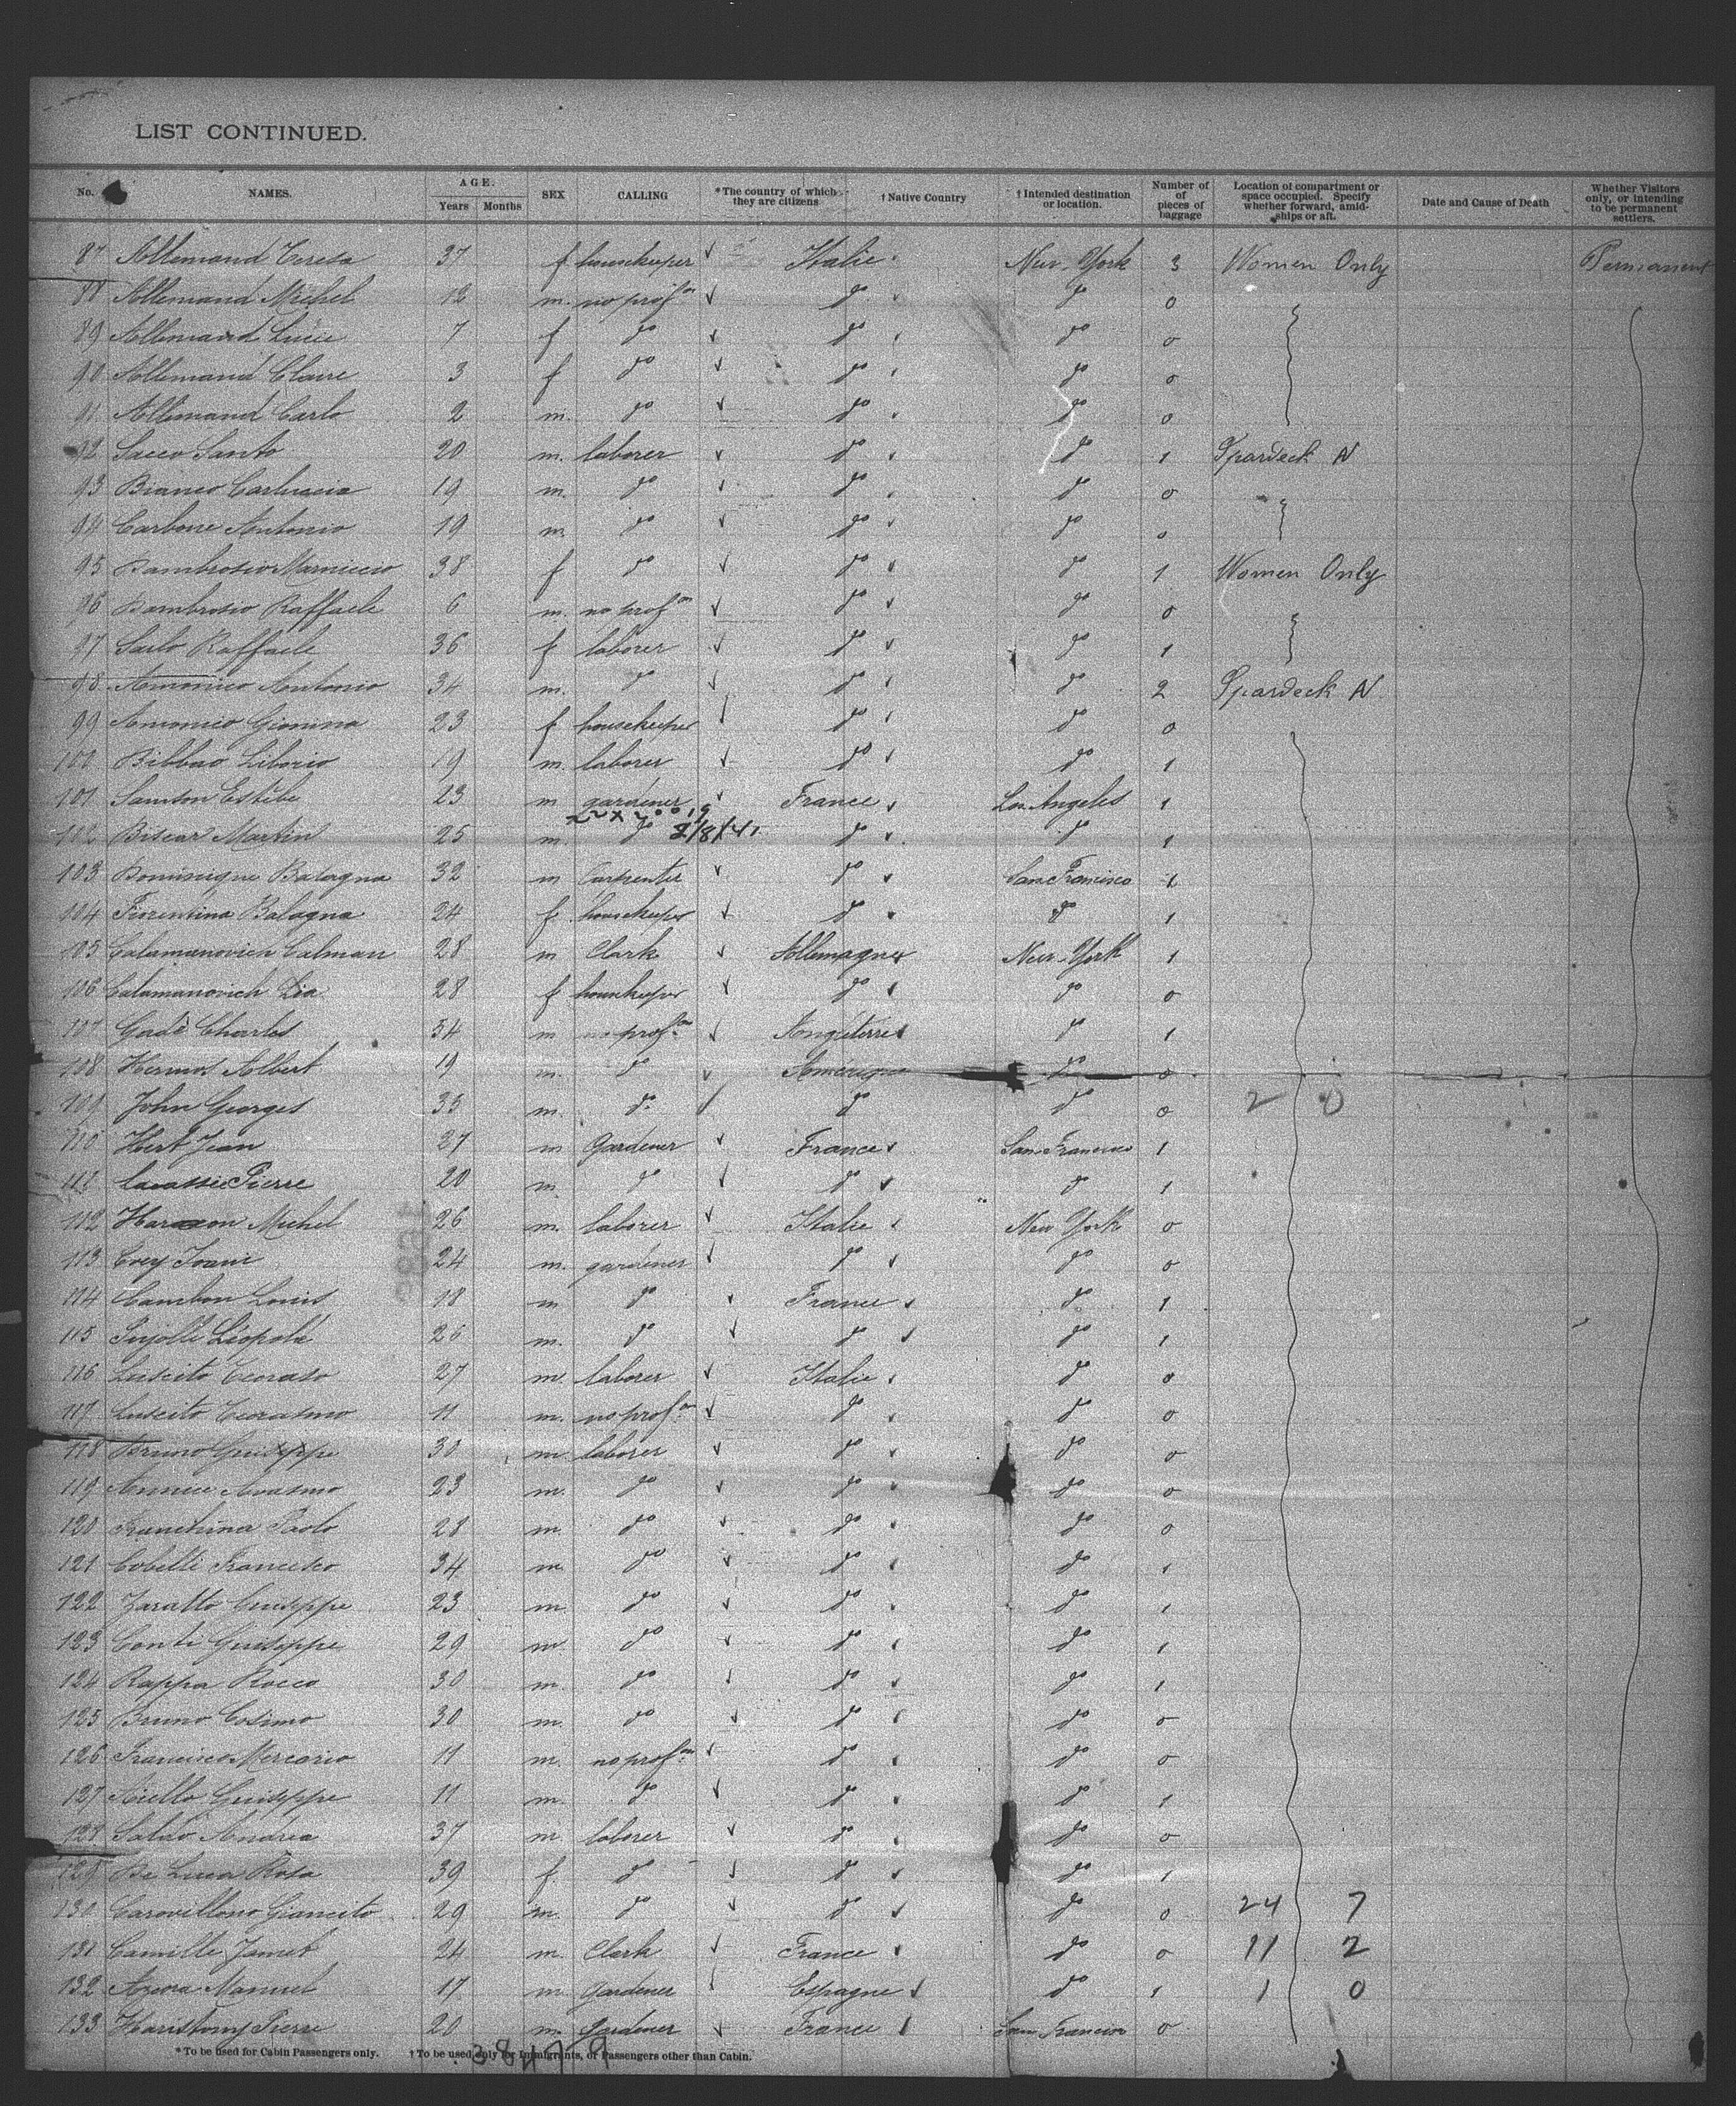 LIST CONTINUED.
No. NAMES. AGE. Years Months SEX CALLING *The country of which they are citizens †Native Country †Intended destination or location. Number of of pieces of baggage Location of compartment or space occupied. Specify whether forward, amid-ships or aft. Date and Cause of Death Whether Visitors only, or intending to be permanent settlers.
87 Allemand Teresa 37 f housekeeper Italie New-York 3 Women Only Permanent
88 Allemand Michel 12 m. no prof.on do do 0
89 Allemand Lucie 7 f do do do 0
90 Allemand Claire 3 f do do do 0
91 Allemand Carlo 2 m. do do do 0
92 Sacco Santo 20 m. laborer do do 1 Spardeck N
93 Bianco 19 m. do do do 0
94 Carbone Antonio 19 m. do do do 0
95 Dambrosio 38 f do do do 1 Women Only
96 Dambrosio Raffaele 6 m. no prof.on do do 0
97 Raffaele 36 f laborer do do 1
98 Antonio 34 m. do do do 2 Spardeck N
99 23 f housekeeper do do 0
100 Bibbao Liborio 19 m. laborer do do 1
101 Samson Estèbe 23 m gardener France Los Angeles 1
102 Biscar Martin 25 m. do 2/8/41 do do 1
103 Dominique Balagna 32 m Carpenter do San Francisco 1
104 Fiorentina Balagna 24 f housekeeper do do 1
105 Calamanovich Calman 28 m Clark Allemagne New-York 1
106 Calamanovich Lia 28 f housekeeper do do 0
107 Gade Charles 34 m no prof.on Angleterre do 1
108 Albert 19 m. do Amérique do 0
109 John Georges 35 m. do do do 0 2 0
110 Jean 27 m Gardener France San Francisco 1
111 Lacassie Pierre 20 m. do do do 1
112 Michel 26 m. laborer Italie New York 0
113 24 m. gardener do do 0
114 Cambon Louis 18 m do France do 1
115 Léopold 26 m. do do do 1
116 Luscito 27 m. laborer Italie do 0
117 Luscito 11 m. no prof.on do do 0
118 Bruno Guiseppe 30 m. laborer do do 0
119 23 m. do do do 0
120 Franchina Paolo 28 m. do do do 0
121 Cobelli Francesco 34 m. do do do 1
122 Zaratto Guiseppe 23 m do do do 1
123 Conti Guiseppe 29 m. do do do 1
124 Rappa Rocco 30 m. do do do 1
125 Bruno Cosimo 30 m. do do do 0
126 Francisco Mercurio 11 m. no prof.on do do 0
127 Aiello Guiseppe 11 m. do do do 1
128 Andrea 37 m. laborer do do 0
129 De Luca Rosa 39 f do do do 1
130 Carovillono Giancito 29 m. do do do 0 24 7
131 Camille Jamet 24 m. Clark France do 0 11 2
132 Manuel 17 m Gardener Espagne do 1 1 0
133 Haristouy Pierre 20 m. gardener France San Francisco 0
*To be used for Cabin Passengers only. †To be used only for Immigrants, or Passengers other than Cabin.